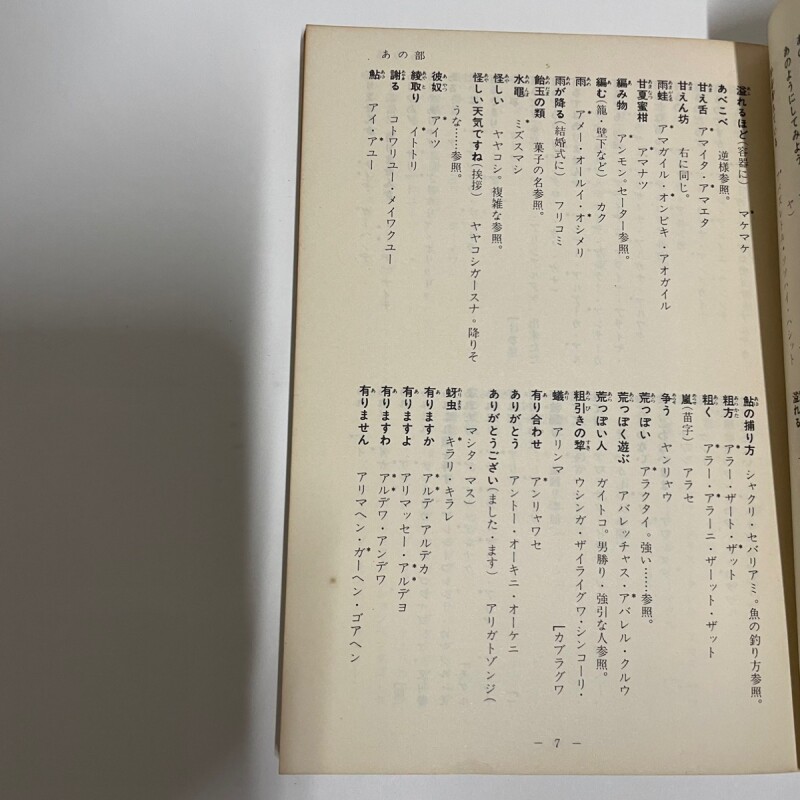 あの部
溢れるほど(容器に) マケマケ
あべこべ 逆様参照。
甘え舌 アマイタ・アマエタ
甘えん坊 右に同じ。
雨蛙 アマガイル・オンビキ・アオガイル
甘夏蜜柑 アマナツ
編み物 アンモン。セーター参照。
編む(籠・壁下など) カク
雨 アメー・オールイ・オシメリ
雨が降る(結婚式に) フリコミ
飴玉の類 菓子の名参照。
水黽 ミズスマシ
怪しい ヤヤコシ。複雑な参照。
怪しい天気ですね(挨拶) ヤヤコシガースナ。降りそ
うな……参照。
彼奴 アイツ
綾取り イトトリ
謝る コトワリユー・メイワクユー
鮎 アイ・アユー
鮎の捕り方 シャクリ・セバリアミ。魚の釣り方参照。
粗方 アラー・ザート・ザット
粗く アラー・アラーニ・ザーット・ザット
嵐(苗字) アラセ
争う ヤンリャウ
荒っぽい アラクタイ。強い……参照。
荒っぽく遊ぶ アバレッチャス・アバレル・クルウ
荒っぽい人 ガイトコ。男勝り・強引な人参照。
粗引きの犂 ウシンガ・ザイライグワ・シンコーリ・
[カブラグワ
蟻 アリンマ
有り合わせ アンリャワセ
ありがとう アントー・オーキニ・オーケニ
ありがとうござい(ました・ます) アリガトゾンジ(
マシタ・マス)
蚜虫 キラリ・キラレ
有りますか アルデ・アルデカ
有りますよ アリマッセー・アルデヨ
有りますわ アルデワ・アンデワ
有りません アリマヘン・ガーヘン・ゴアヘン
— 7 —